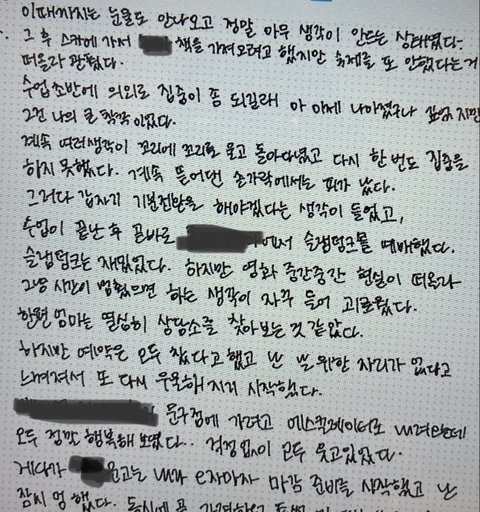 이때까지는 눈물도 안나오고 정말 아무 생각이 안드는 상태였다.
그 후 스카에 가서 책을 가져오려고 했지만 숙제를 또 안했다는게
떠올라 관뒀다.
수업 초반에 의외로 집중이 좀 되길래 아 이제 나아졌구나 싶었지만
그건 나의 큰 착각이었다.
계속 여러생각이 꼬리에 꼬리를 물고 돌아다녔고 다시 한번도 집중을
하지 못했다. 계속 뜯어댔던 손가락에서는 피가 났다.
그러다 갑자기 기분전환을 해야겠다는 생각이 들었고,
수업이 끝난 후 곧바로 에서 슬램덩크를 예매했다.
슬램덩크는 재밌었다. 하지만 영화 중간중간 현실이 떠올라
그냥 시간이 멈췄으면 하는 생각이 자꾸 들어 괴로웠다.
한편 엄마는 열심히 상담소를 찾아보는 것 같았다.
하지만 예약은 모두 찼다고 했고 난 날 위한 자리가 없다고
느껴져서 또 다시 우울해지기 시작했다.
문구점에 가려고 에스컬레이터로 내려왔는데
모두 정말 행복해 보였다. 걱정없이 모두 웃고있었다.
게다가 문고는 내가 오자마자 마감 준비를 시작했고 난
잠시 멍 했다.